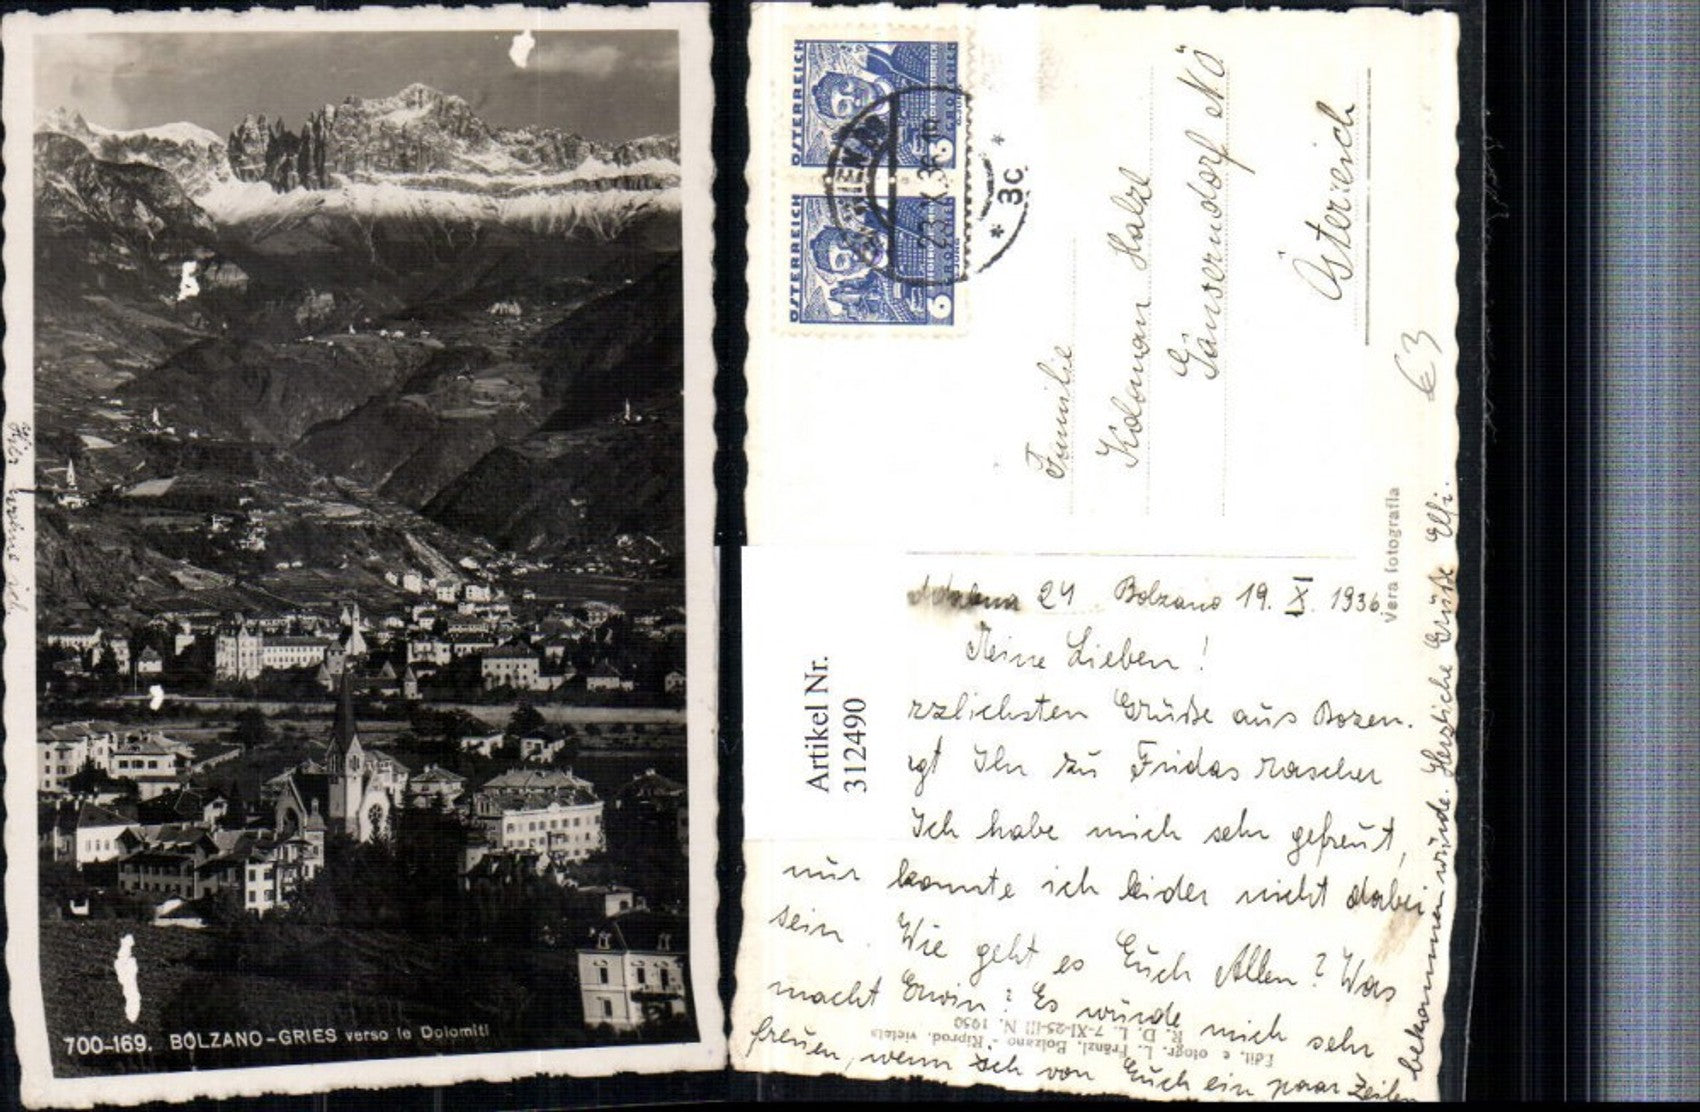 700-169. BOLZANO-GRIES verso le Dolomiti
Hier
ich
ÖSTERREICH
6
GROSCHEN
ÖSTERREICH
6
GROSCHEN
WIEN
23.X.36
* 3c *
Familie
Koloman
Gänserndorf NÖ
Österreich
€3
Vera fotografia
Artikel Nr.
312490
24 Bolzano 19. X. 1936.
Meine Lieben!
rzlichsten Grüße aus Bozen.
gt Ihr zu Fridas rascher
Ich habe mich sehr gefreut,
nur konnte ich leider nicht dabei
sein. Wie geht es Euch Allen? Was
macht Erwin? Es würde mich sehr
freuen, wenn ich von Euch ein paar Zeilen
bekommen würde. Herzliche Grüße Elfi.
Edit. e fotogr. L. Fränzl, Bolzano - Riprod. vietata
R. D. L. 7-XI-25-III N. 1950